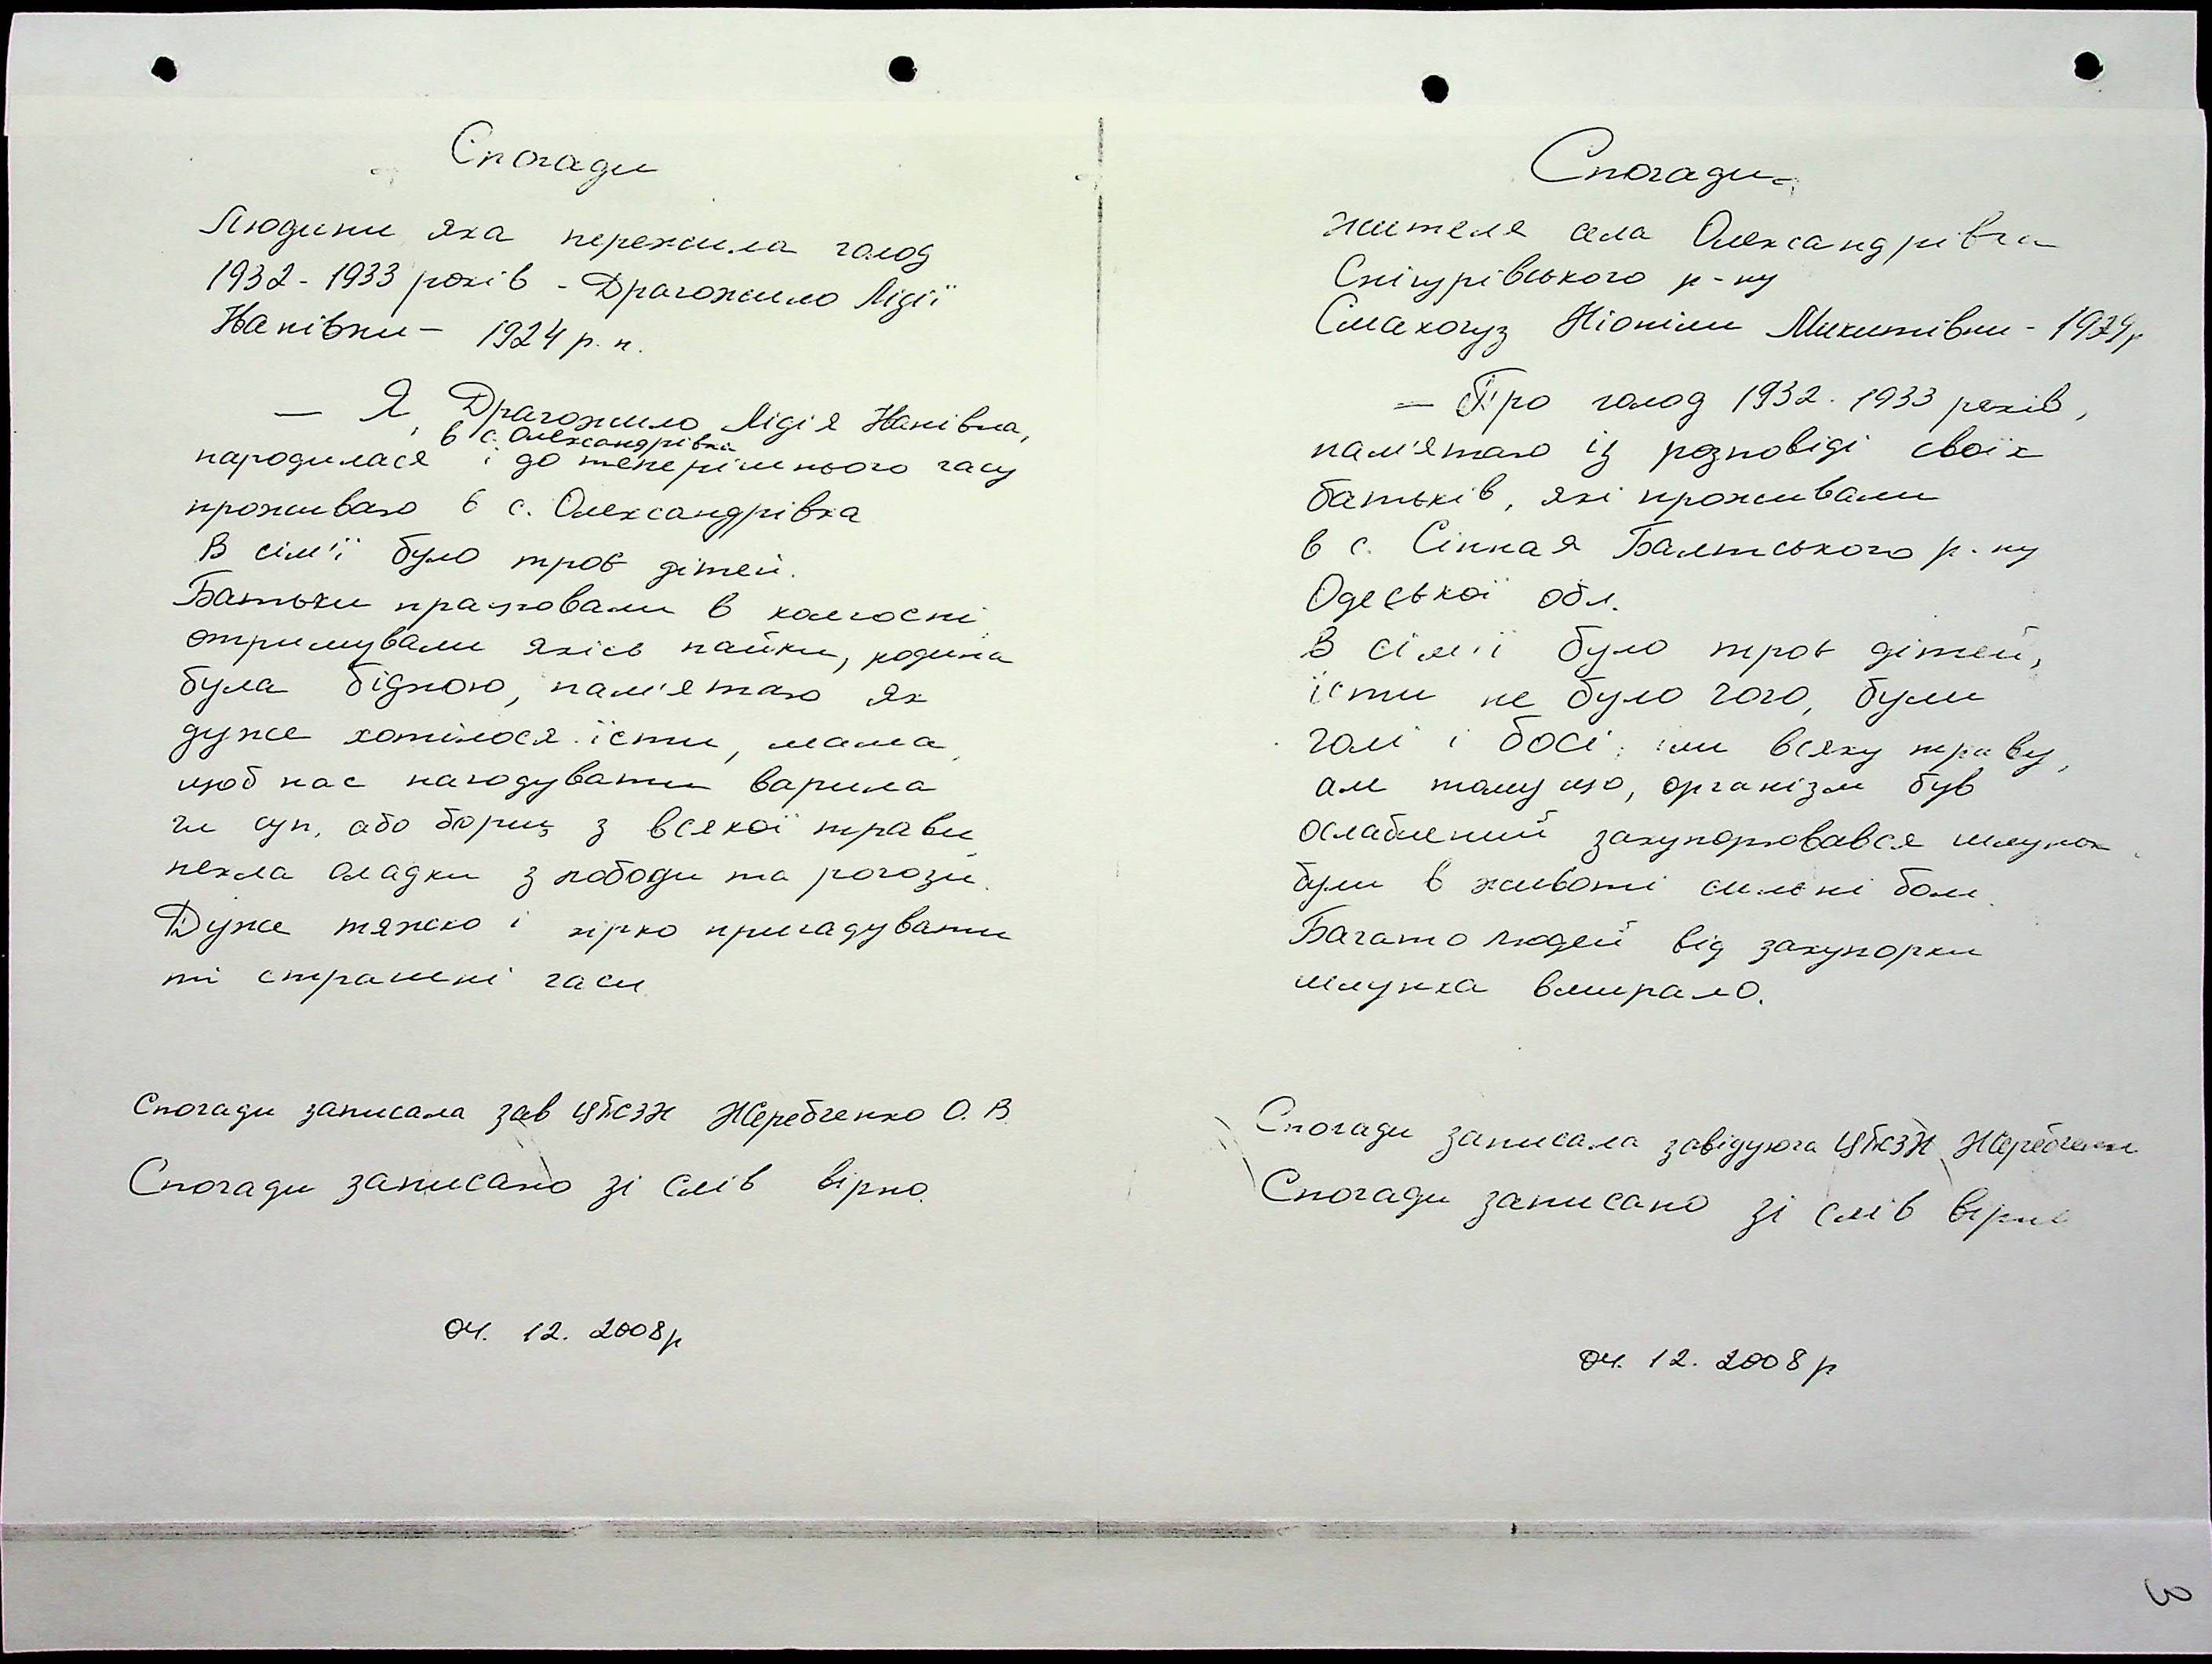 Спогади
Людини яка пережила голод
1932-1933 років - Драгожило Лідії
Нанівни - 1924 р. н.
— Я, Драгожило Лідія Нанівна,
в с. Олександрівка
народилася і до теперішнього часу
проживаю в с. Олександрівка
В сім'ї було троє дітей.
Батьки працювали в колгоспі
отримували якісь пайки, родина
була бідною, пам'ятаю як
дуже хотілося їсти, мама,
щоб нас нагодувати варила
чи суп, або борщ з всякої трави
пекла оладки з лободи та рогози.
Дуже тяжко і гірко пригадувати
ті страшні часи
Спогади записала зав ЦБСЗН Жеребченко О. В.
Спогади записано зі слів вірно.
04. 12. 2008р
Спогади
жителя села Олександрівка
Снігурівського р-ну
Смакогуз Ніоніли Микитівни -
— Про голод 1932-1933 років,
пам'ятаю із розповіді своїх
батьків, які проживали
в с. Сінная Балтського р-ну
Одеської обл.
В сім'ї було троє дітей,
їсти не було чого, були
голі і босі, їли всяку траву,
але тому що, організм був
ослаблений закупорювався шлунок
були в животі сильні болі.
Багато людей від закупорки
шлунка вмирало.
Спогади записала завідуюча ЦБСЗН Жеребченко
Спогади записано зі слів вірно
04. 12. 2008р
3